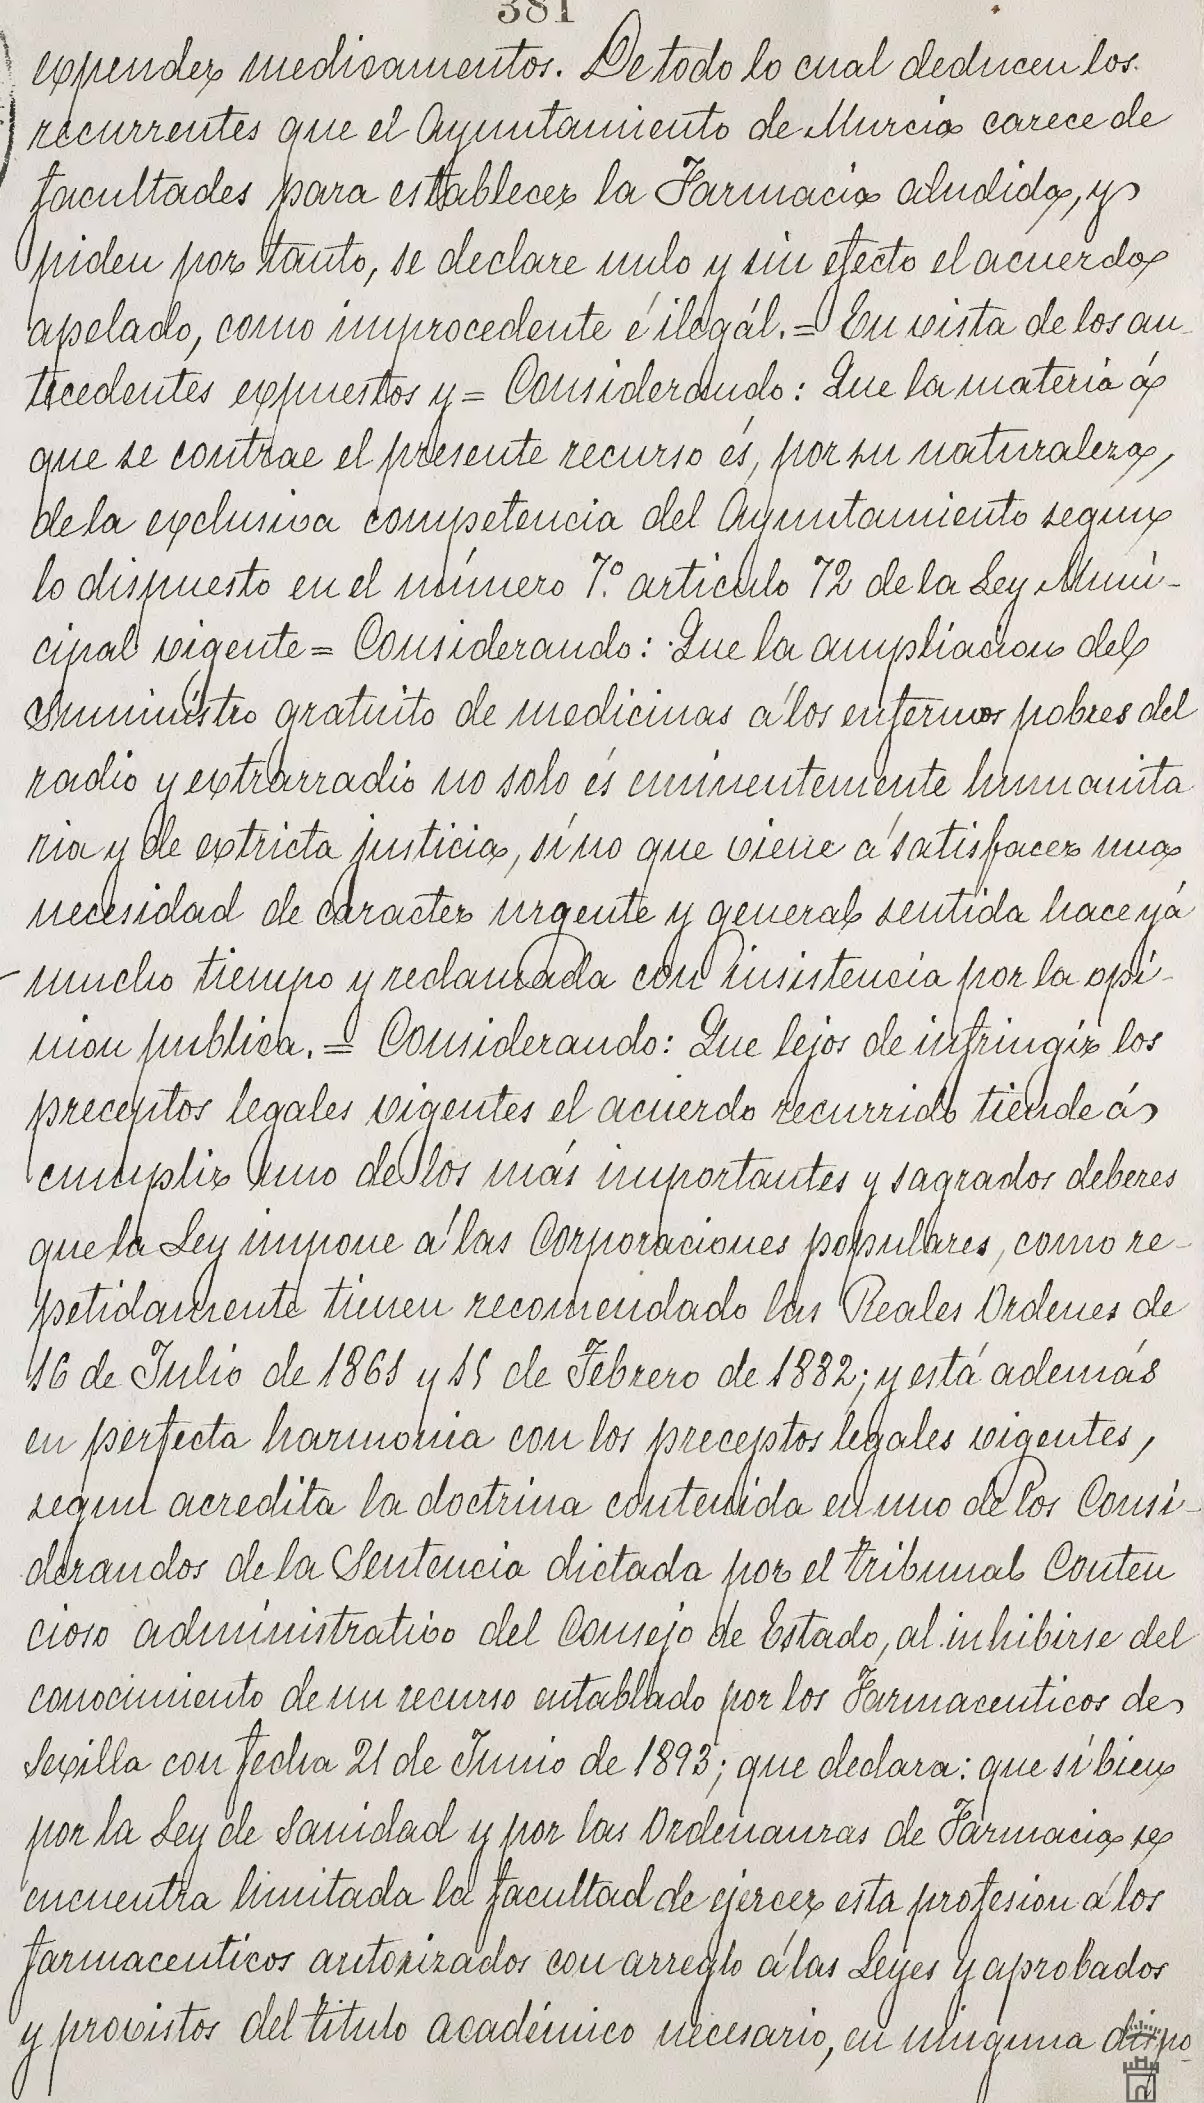 381
expender medicamentos. De todo lo cual deducen los
recurrentes que el Ayuntamiento de Murcia carece de
facultades para establecer la Farmacia aludida, y
piden por tanto, se declare nulo y sin efecto el acuerdo
apelado, como improcedente é ilegál. = En vista de los an-
tecedentes expuestos y = Considerando: Que la materia á
que se contrae el presente recurso és, por su naturaleza,
de la exclusiva competencia del Ayuntamiento segun
lo dispuesto en el número 7.º articulo 72 de la Ley Muni-
cipal vigente = Considerando: Que la ampliacion del
suministro gratuito de medicinas á los enfermos pobres del
radio y extrarradio no solo és eminentemente humanita
ria y de extricta justicia, sino que viene á satisfacer una
necesidad de caracter urgente y general sentida hace yá
mucho tiempo y reclamada con insistencia por la opi-
nion publica. = Considerando: Que lejos de infringir los
preceptos legales vigentes el acuerdo recurrido tiende á
cumplir uno de los más importantes y sagrados deberes
que la Ley impone á las Corporaciones populares, como re-
petidamente tienen recomendado las Reales Ordenes de
16 de Julio de 1861 y 15 de Febrero de 1882; y está además
en perfecta harmonia con los preceptos legales vigentes,
segun acredita la doctrina contenida en uno de los Consi-
derandos de la Sentencia dictada por el tribunal Conten
cioso administrativo del Consejo de Estado, al inhibirse del
conocimiento de un recurso entablado por los Farmaceuticos de
Sevilla con fecha 21 de Junio de 1893; que declara: que si bien
por la Ley de Sanidad y por las Ordenanzas de Farmacia se
encuentra limitada la facultad de ejercer esta profesion á los
farmaceuticos autorizados con arreglo á las Leyes y aprobados
y provistos del titulo académico necesario, en ninguna dispo-